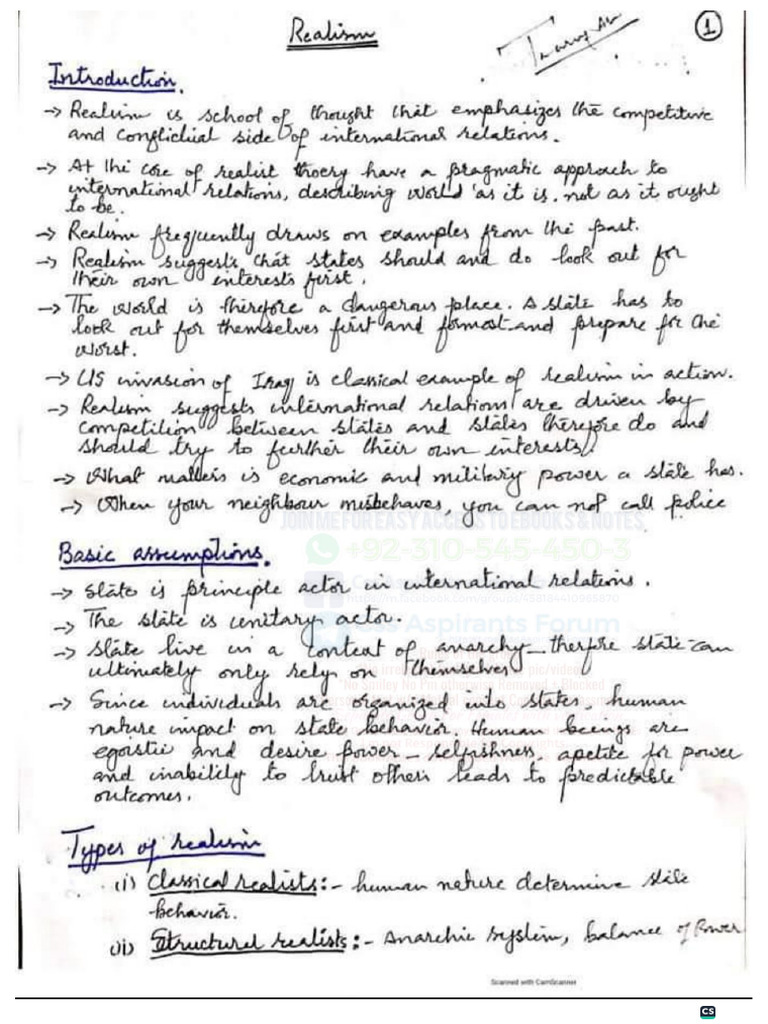 Realism
1
Introduction.
→ Realism is school of thought that emphasizes the competitive
and conflictual side of international relations.
→ At the core of realist thoery have a pragmatic approach to
international relations, describing world 'as it is, not as it ought
to be.
→ Realism frequently draws on examples from the past.
→ Realism suggests that states should and do look out for
their own interests first.
→ The world is therefore a dangerous place. A state has to
look out for themselves first and formost and prepare for the
worst.
→ US invasion of Iraq is classical example of realism in action.
→ Realism suggests international relations are driven by
competition between states and states therefore do and
should try to further their own interests.
→ What matters is economic and military power a state has.
→ When your neighbour misbehaves, you can not call police
JOIN ME FOR EASY ACCESS TO EBOOKS & NOTES
+92-310-545-450-3
Basic assumptions.
→ State is principle actor in international relations.
→ The state is unitary actor.
Css Aspirants Forum
→ State live in a context of anarchy - therfore state can
ultimately only rely on themselves
→ Since individuals are organized into states human
nature impact on state behavior. Human beeings are
egoistic and desire power - selfishness, apetite for power
and inability to trust others leads to predictable
outcomes.
Types of realism
(i) Classical realists:- human nature determine state
behavior.
(ii) Structural realists:- Anarchic system, balance of Power
Scanned with CamScanner
CS